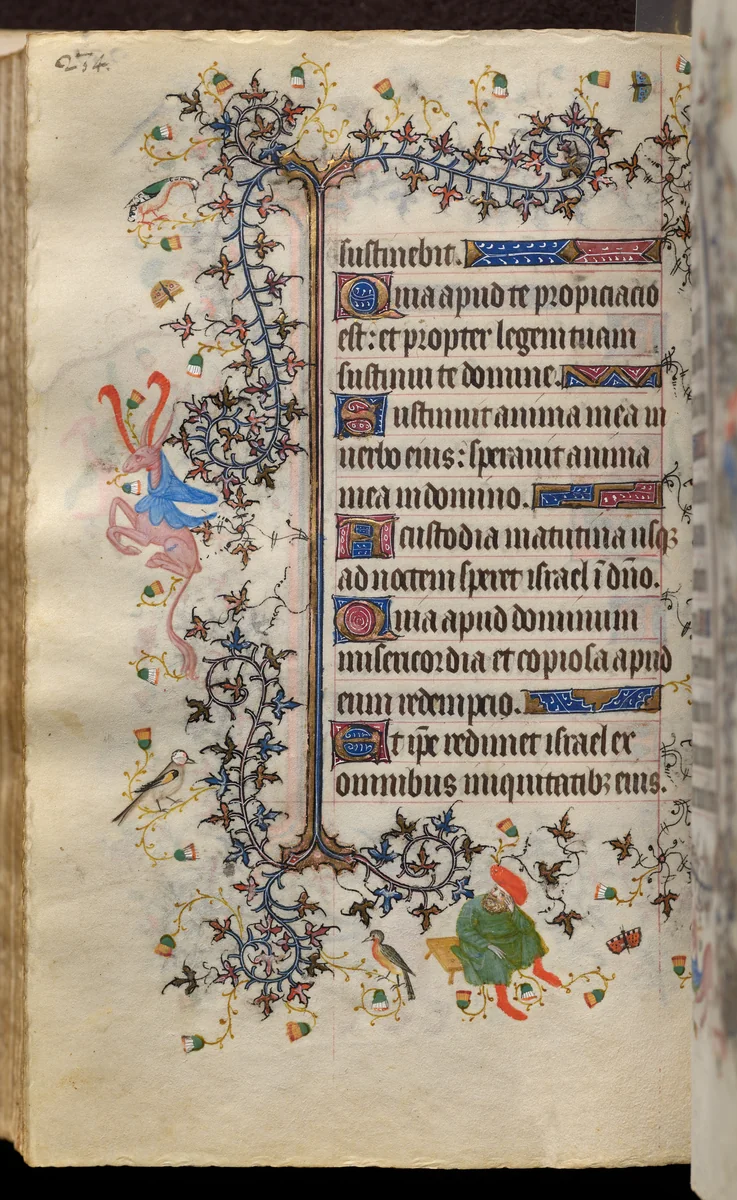 254.
sustinebit.
Quia apud te propiciacio
est: et propter legem tuam
sustinui te domine.
Sustinuit anima mea in
uerbo eius: sperauit anima
mea in domino.
A custodia matutina usqꝫ
ad noctem speret israel ī dn̄o.
Quia apud dominum
misericordia et copiosa apud
eum redempcio.
Et ip̄e redimet israel ex
omnibus iniquitatibꝫ eius.